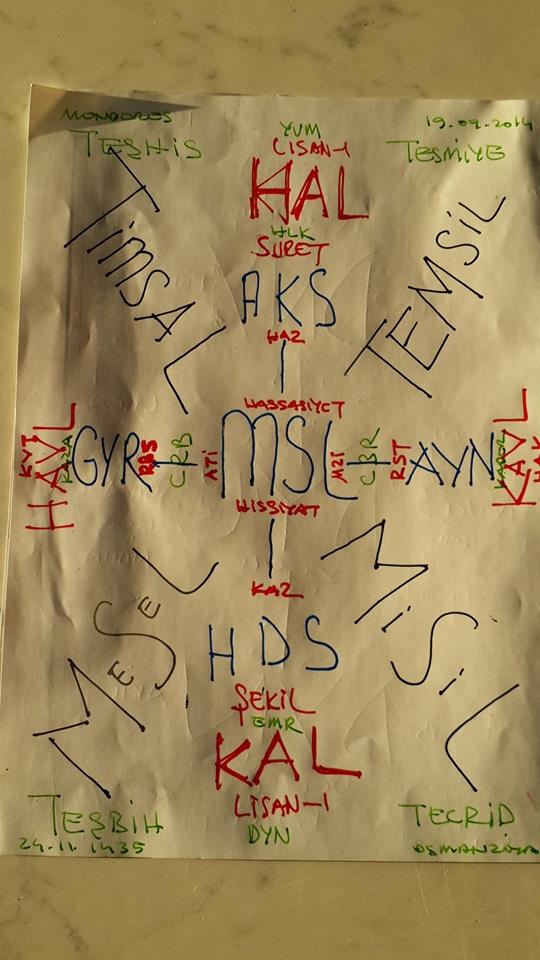 MONDOROS YUM 19.09.2014
TEŞHİS LİSAN-I TESMİYE
HAL
HLK
TİMSAL SURET TEMSİL
AKS
HAZ
HASSASİYET
KVT HAVL GYR RBS CRB ATİ MSL MZİ CBR RST AYN KAVL HAK
HİSSİYAT
KAZ
MESEL HDS MİSİL
ŞEKİL
EMR
KAL
TEŞBİH LİSAN-I TECRİD
24.11.1435 DYN OSMANZİYA